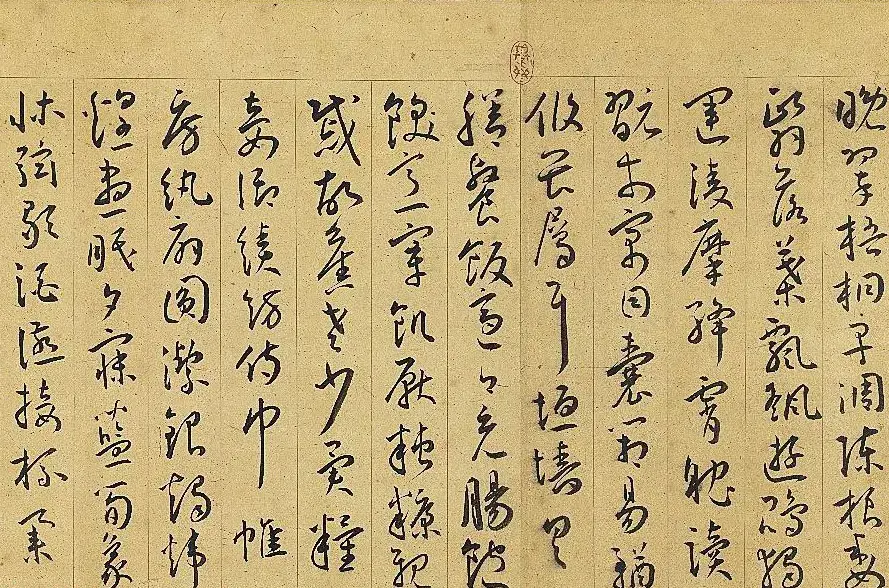 晚翠梧桐早凋陳根委
翳落葉飄颻遊鵾獨
運凌摩絳霄耽讀
翫市寓目囊箱易輶
攸畏屬耳垣牆具
膳飡飯適口充腸飽
飫烹宰飢厭糟糠親
戚故舊老少異糧
妾御績紡侍巾帷
房紈扇圓潔銀燭煒
煌晝眠夕寐藍筍象
床弦歌酒讌接杯舉